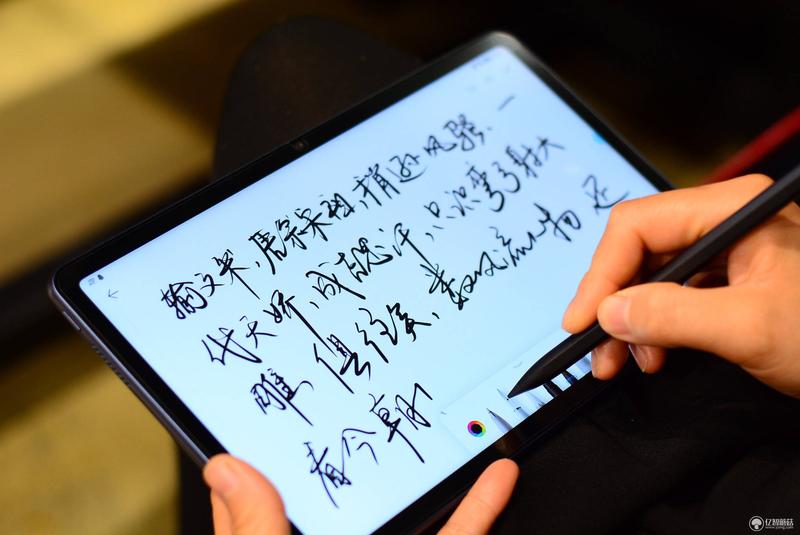 输文采,唐宗宋祖,稍逊风骚.一
代天骄,成吉思汗,只识弯弓射大
雕,俱往矣,数风流人物 还
看今朝
亿智蘑菇